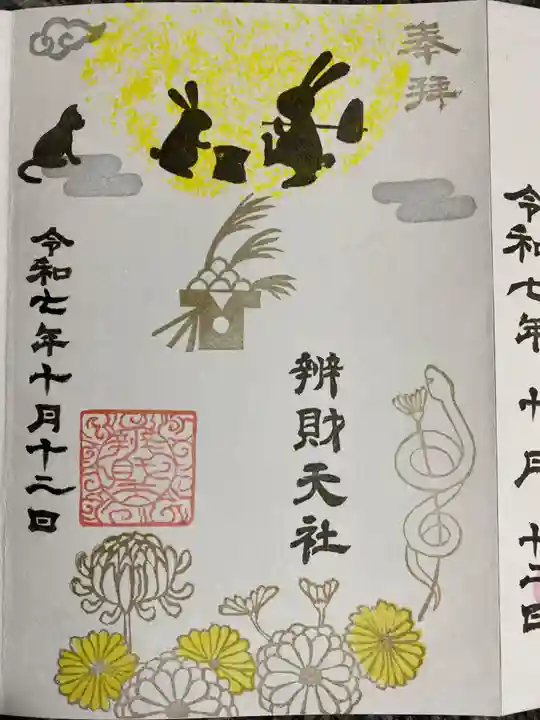 奉拝
辨財天社
令和七年十月十二日
令和七年十月十二日